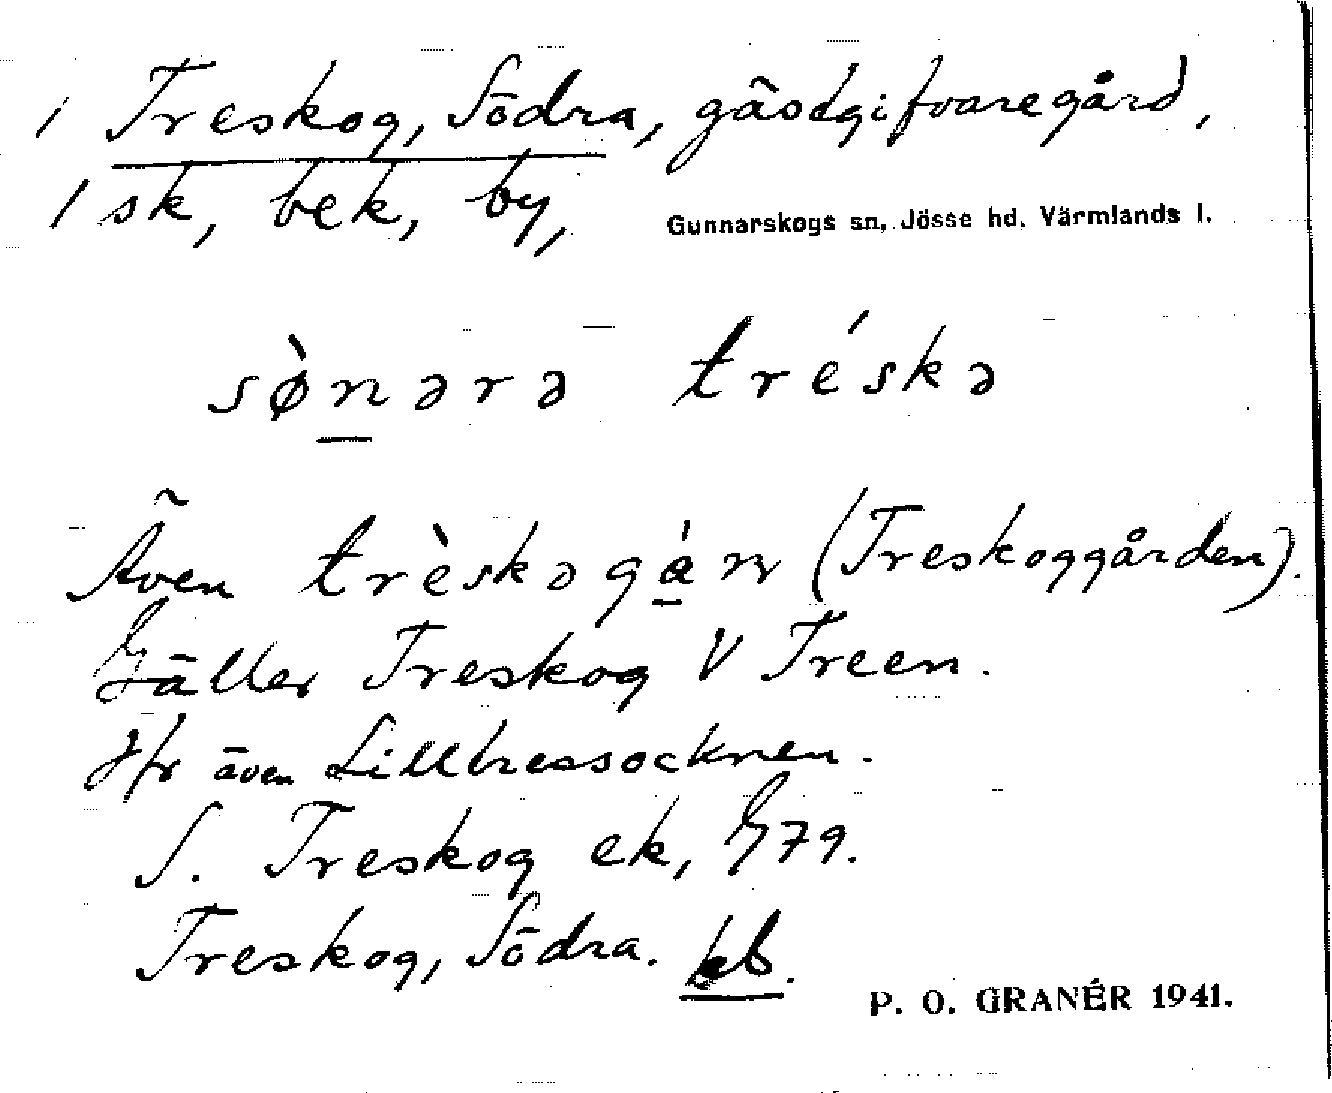 / Treskog, Södra, gästgifvaregård,
/ sk, bek, by, Gunnarskogs sn, Jösse hd. Värmlands l.
sø̀nərə tréskə
Även trèskəgán (Treskoggården).
Gäller Treskog V Treen.
Jfr även Lilltressocknen.
S. Treskog ek, G79.
Treskog, Södra. kb.
P. O. GRANÉR 1941.